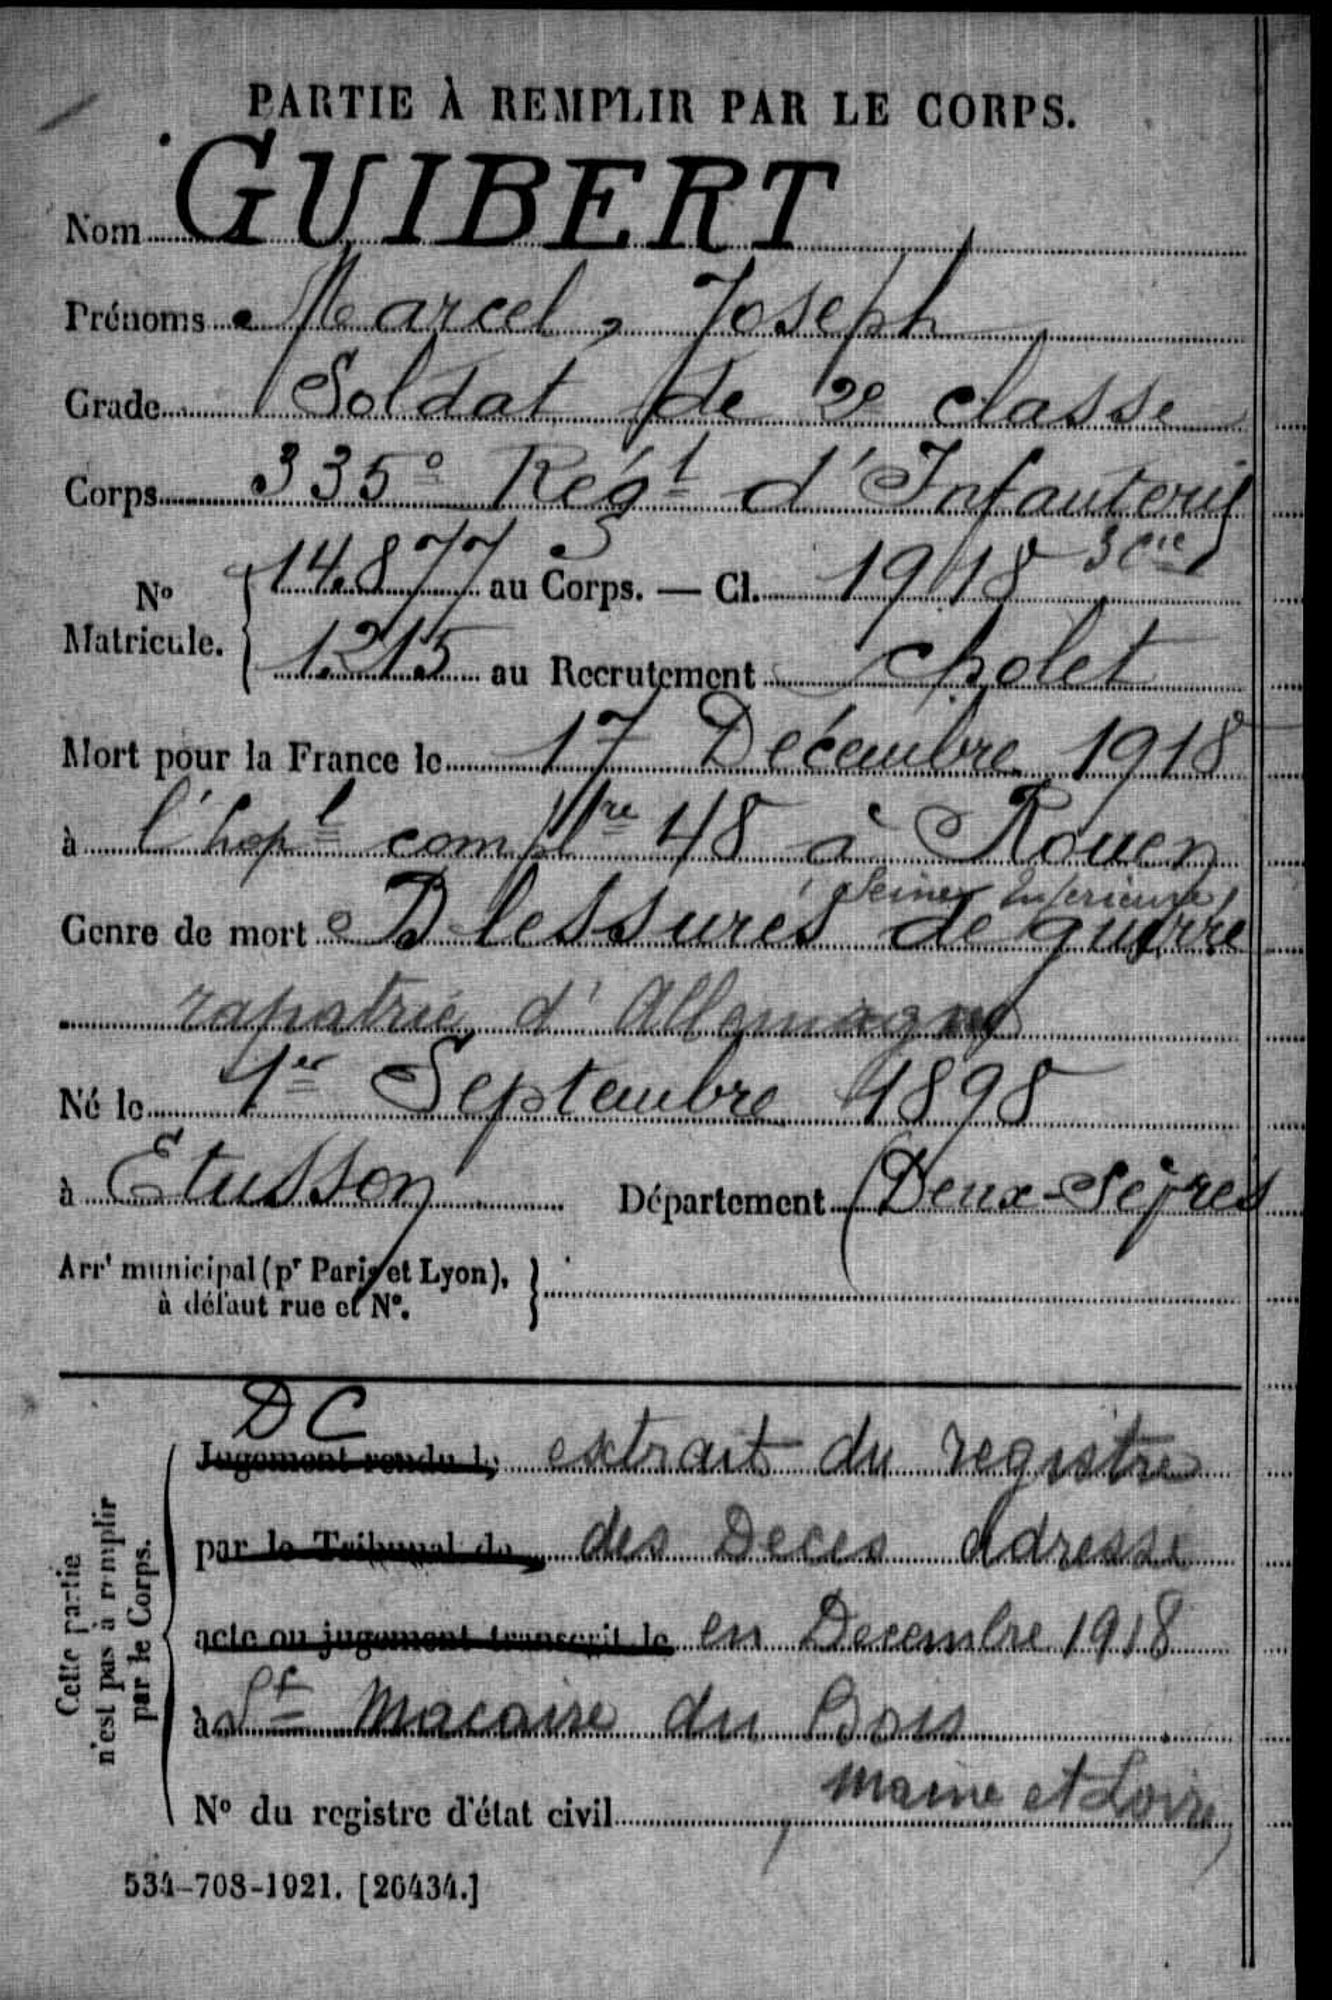 PARTIE À REMPLIR PAR LE CORPS.
Nom GUIBERT
Prénoms Marcel, Joseph
Grade Soldat de 2e classe
Corps 335e Régt d'Infanterie
3 Cie
No Matricule. { 14.877 au Corps. — Cl. 1918
1215 au Recrutement Cholet
Mort pour la France le 17 Décembre 1918
à l'hopl complre 48 à Rouen
(Seine Inferieure)
Genre de mort Blessures de guerre
rapatrié d'Allemagne
Né le 1er Septembre 1898
à Etusson Département (Deux-Sèvres
Arrt municipal (pr Paris et Lyon), à défaut rue et No. }
Cette partie n'est pas à remplir par le Corps.
DC
Jugement rendu le extrait du registre
par le Tribunal de des Deces adresse
acte ou jugement transcrit le en Decembre 1918
à St Macaire du Bois
Maine et Loire
No du registre d'état civil
534-708-1921. [26434.]